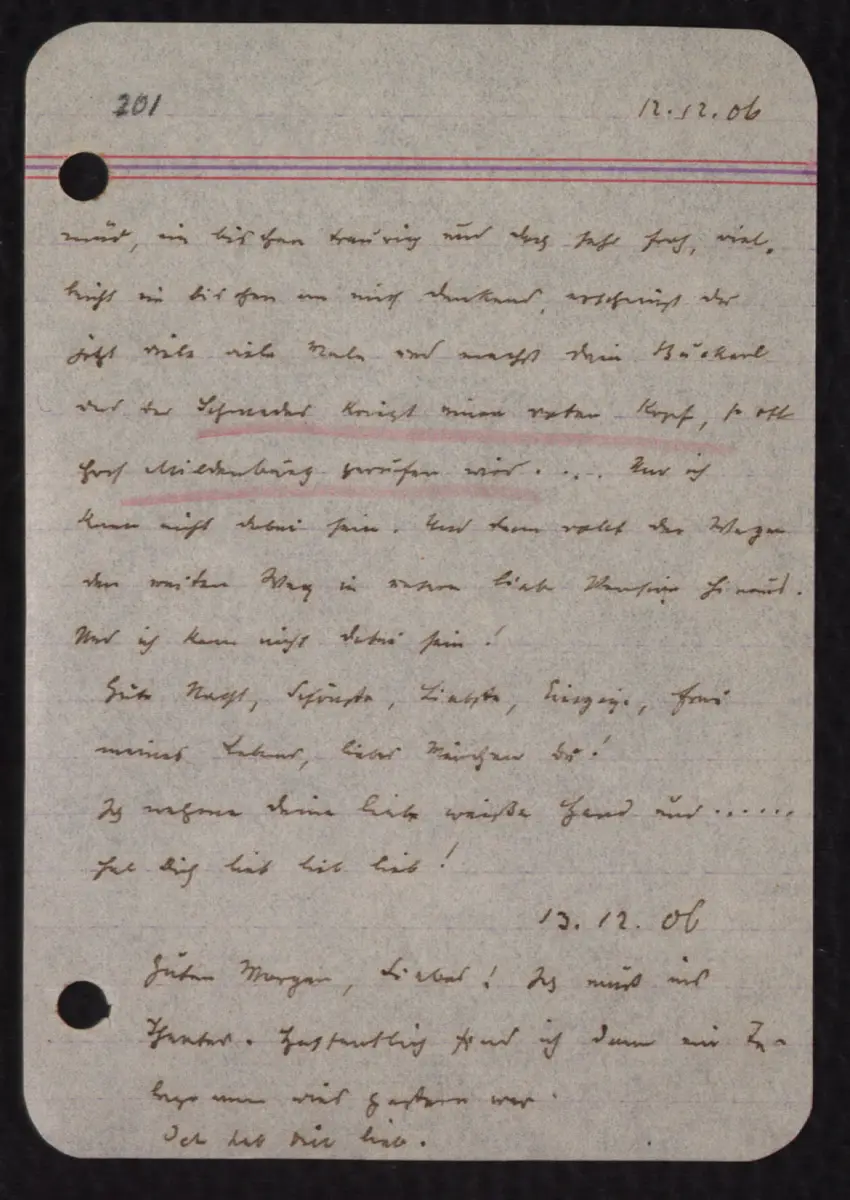 201
12.12.06
müd, ein bischen traurig und doch sehr froh, viel-
leicht ein bischen an mich denkend, erscheinst du
jetzt viele viele Male und machst dein Buckerl
und der Schmedes kriegt einen roten Kopf, so oft
hoch Mildenburg gerufen wird . . . . Nur ich
kann nicht dabei sein. Und dann rollt der Wagen
den weiten Weg in unsere liebe Pension hinaus.
Und ich kann nicht dabei sein!
Gute Nacht, Schönste, Liebste, Einzige, Frau
meines Lebens, liebes Mäuschen du!
Ich nehme deine liebe weiße Hand und ......
hab Dich lieb lieb lieb!
13. 12. 06
Guten Morgen, Liebes! Ich muß ins
Theater. Hoffentlich find ich dann ein Te-
legramm wies gestern war.
Ich hab Dich lieb.